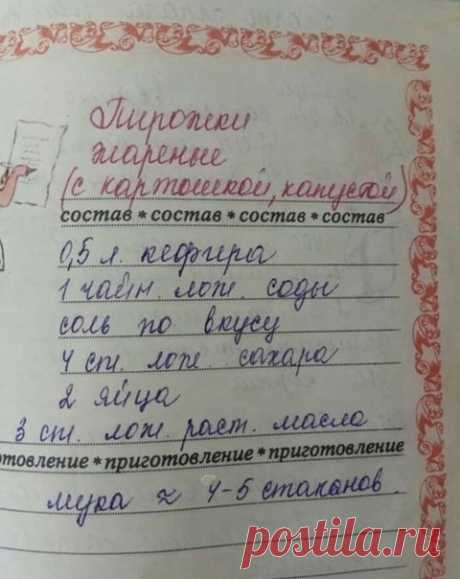 Пирожки
жареные
(с картошкой, капустой)
состав * состав * состав * состав
0,5 л. кефира
1 чайн. лож. соды
соль по вкусу
4 ст. лож. сахара
2 яйца
3 ст. лож. раст. масла
отовление * приготовление * приготовление
мука ≈ 4-5 стаканов.
postila.ru